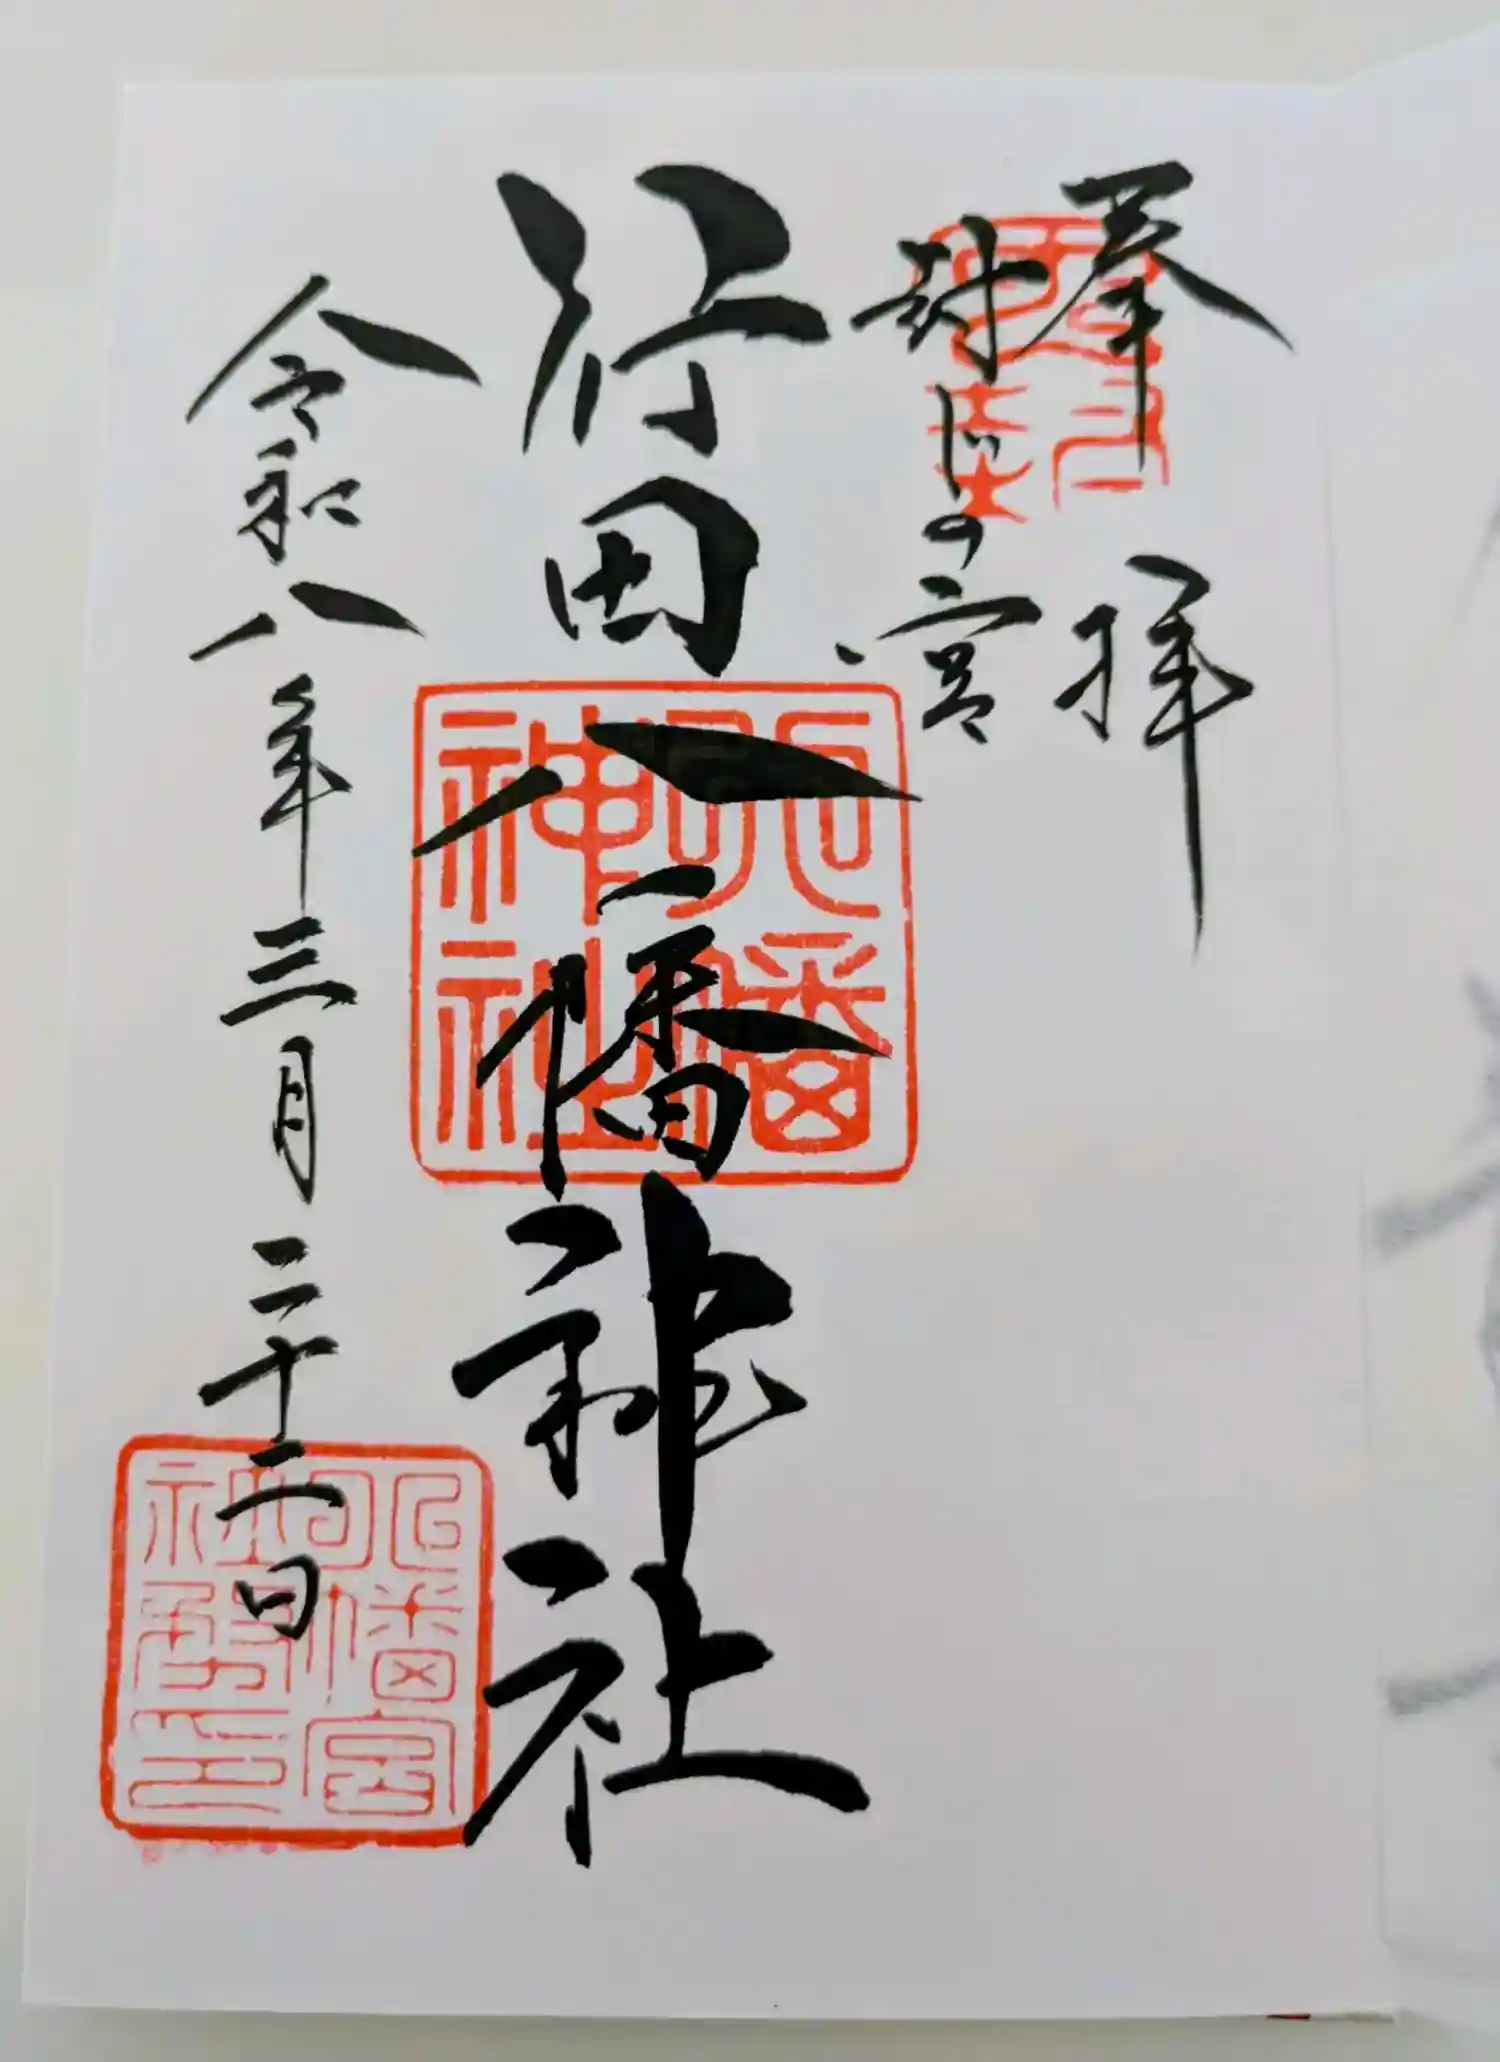 奉拝
封じの宮
行田八幡神社
八幡神社
令和八年三月二十二日
八幡宮社務所印